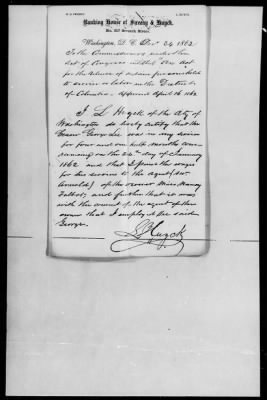 Banking House of Sweeny & Huyck,
No. 357 Seventh Street,
Washington, D. C. Decr 24 1862
To the Commissioners under the
Act of Congress entitled "An Act
for the release of certain persons held
to service or labor in the District
of Columbia" Approved April 16 1862
I L Huyck of the City of
Washington do hereby certify that the
George was in my service
for four and one half months com-
mencing on the 24th day of January
1862 and that I paid the wages
for his service to the agent (Mr.
Arnold) of the owner Miss Nancy
Talbot, and further that it was
with the consent of the agent of the
owner that I employed the said
George.
Huyck